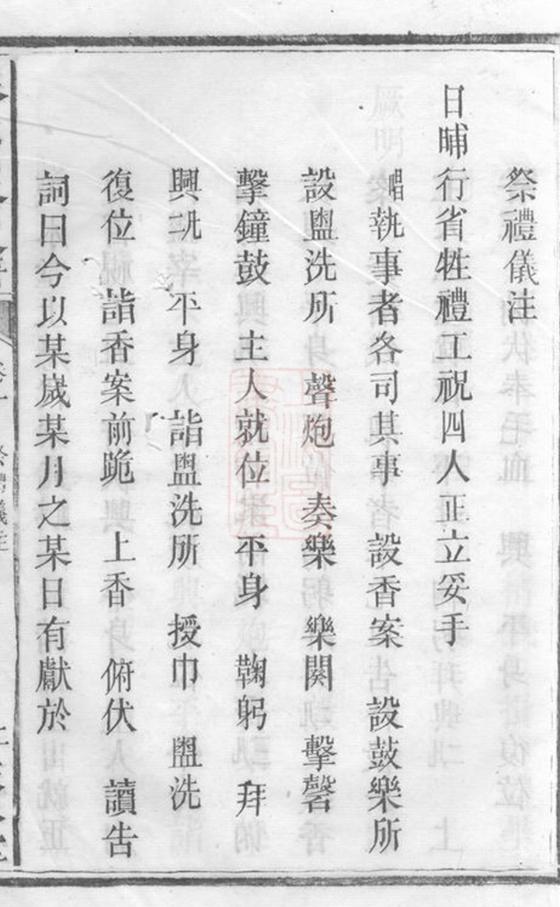 祭禮儀注
日晡行省牲禮工祝四人正立妥手
唱執事者各司其事 設香案 設鼓樂所
設盥洗所 聲炮 奏樂 樂闋 擊磬
擊鐘鼓 主人就位 平身 鞠躬 拜
興 平身 詣盥洗所 授巾 盥洗
復位 詣香案前跪 上香 俯伏 讀告
詞曰今以某歲某月之某日有獻於